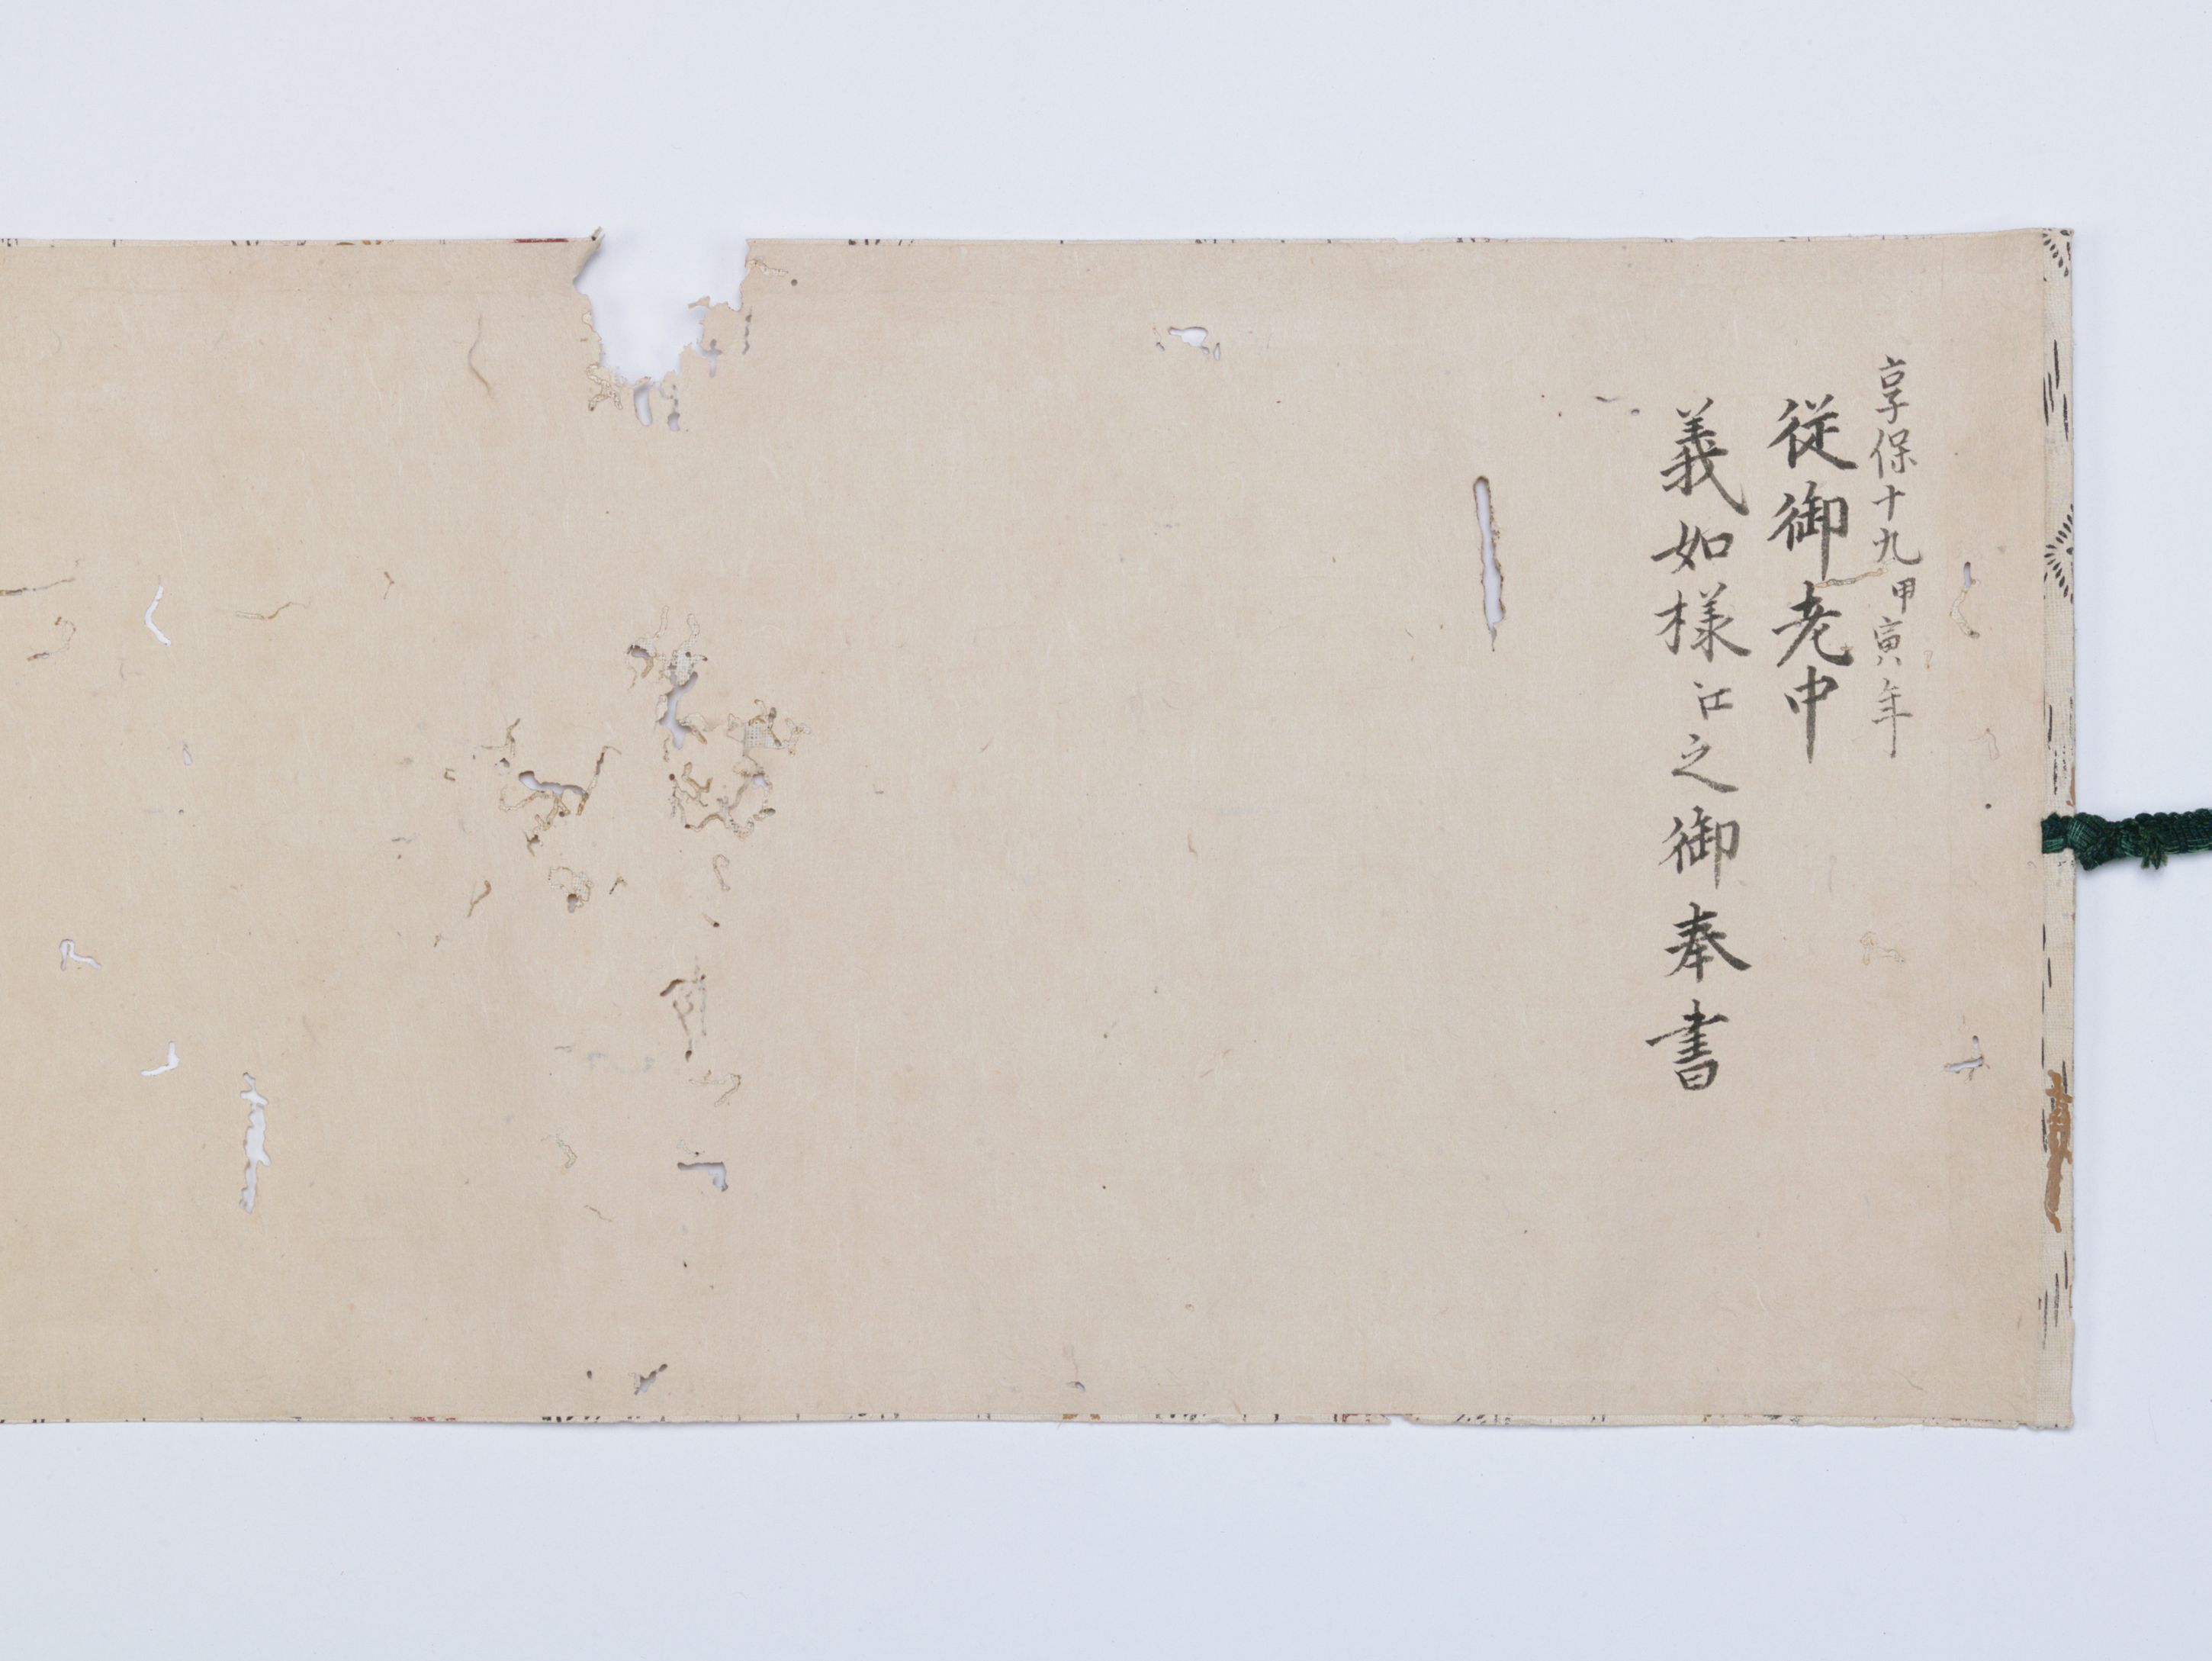 享保十九甲寅年
従御老中
義如様江之御奉書